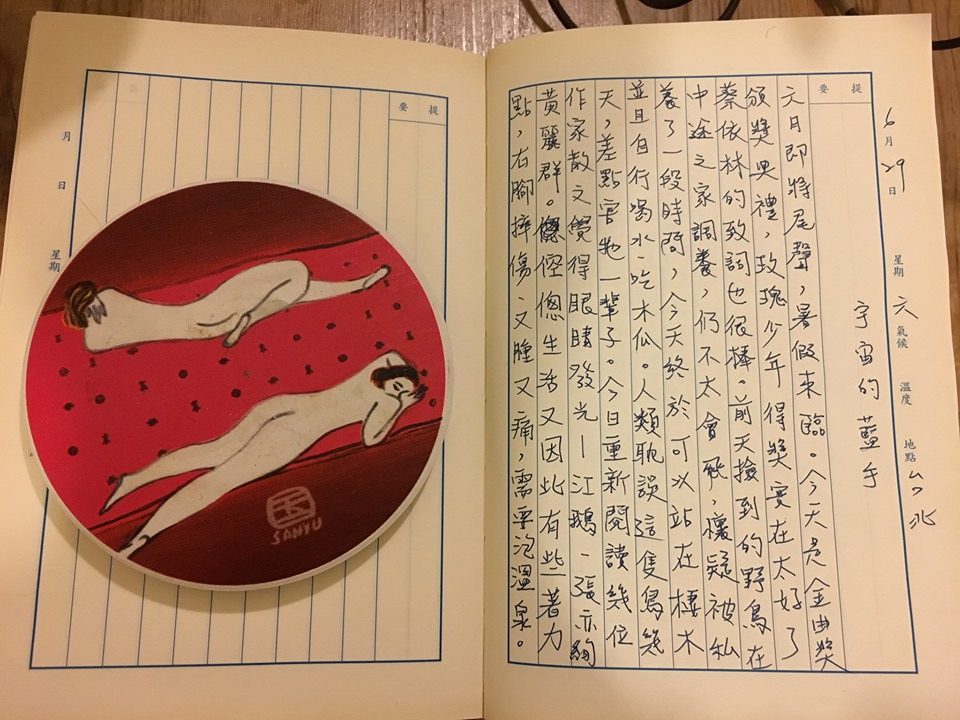 6月29日 星期六 氣候 溫度 地點 台北
宇宙的藍手
提要
六月即將尾聲,暑假來臨。今天是金曲獎
頒獎典禮,玫瑰少年得獎實在太好了
蔡依林的致詞也很棒。前天撿到的野鳥在
中途之家調養,仍不太會飛,懷疑被私
養了一段時間,今天終於可以站在棲木
並且自行喝水、吃木瓜。人類耽誤這隻鳥幾
天,差點害牠一輩子。今日重新閱讀幾位
作家散文覺得眼睛發光—江鵝、張亦絢
黃麗群。倥傯生活又因此有些著力
點,右腳摔傷又腫又痛,需要泡溫泉。
提要
月 日 星期
SANYU